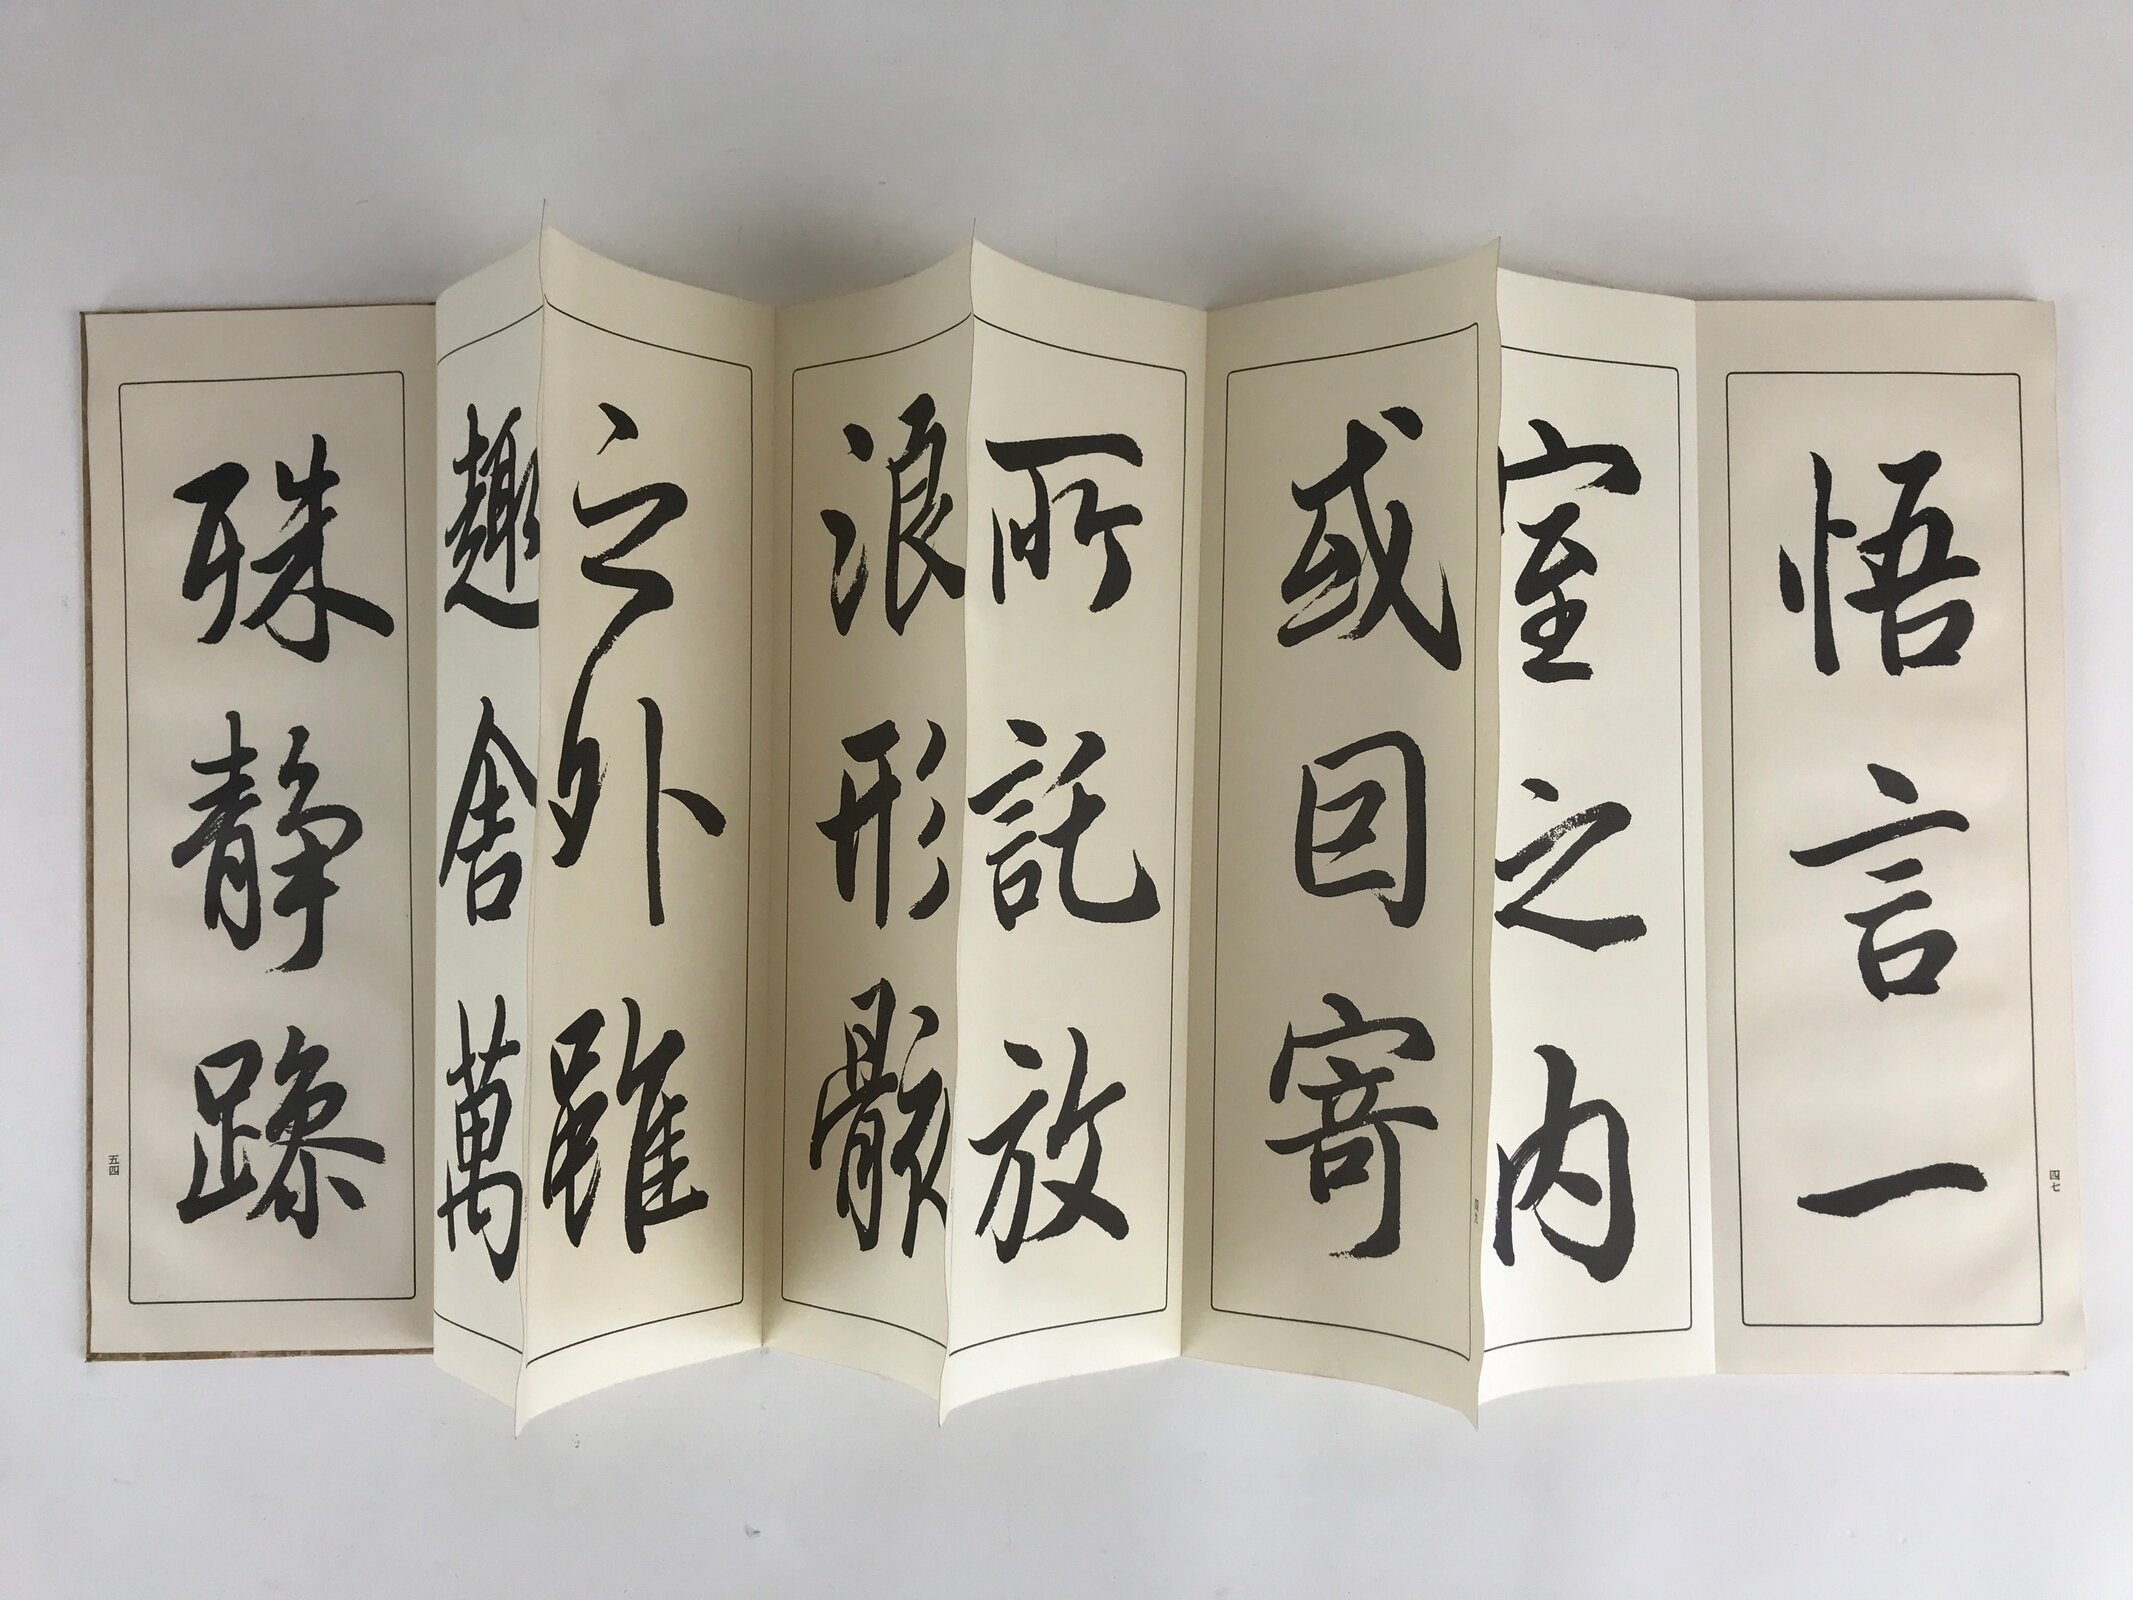 悟言一
四七
室之内
或因寄
所託放
浪形骸
之外雖
趣舍萬
殊静躁
五四